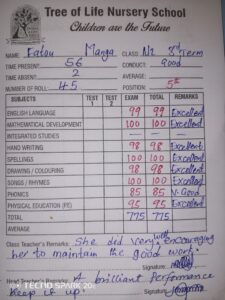 Tree of Life Nursery School
Children are the Future
NAME: Fatou Manga CLASS: N2 3rd Term
TIME PRESENT: 56 CONDUCT: Good
TIME ABSENT: 2 POSITION: 5th
NUMBER OF ROLL: 45
SUBJECTS TEST 1 TEST 2 EXAM TOTAL REMARKS
ENGLISH LANGUAGE 99 99 Excellent
MATHEMATICAL DEVELOPMENT 100 100 Excellent
INTEGRATED STUDIES — — —
HAND WRITING 98 98 Excellent
SPELLINGS 100 100 Excellent
DRAWING / COLOURING 98 98 Excellent
SONGS / RHYMES 100 100 Excellent
PHONICS 85 85 V-Good
PHYSICAL EDUCATION (PE) 95 95 Excellent
TOTAL 775 775
AVERAGE
Class Teacher's Remarks: She did very well encouraging
her to maintain the good work.
Signature:
Head Teacher's Remarks: A brilliant performance
keep it up. Signature:
TECNO SPARK 20